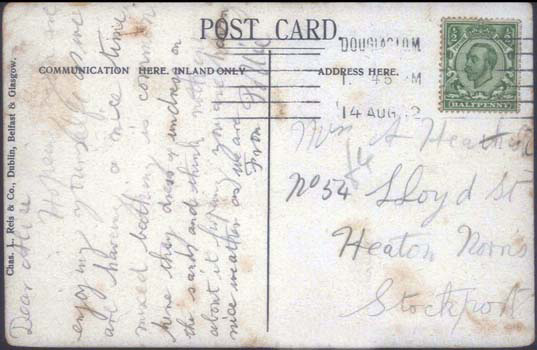 POST CARD.
COMMUNICATION HERE. INLAND ONLY
ADDRESS HERE.
Chas. L. Reis & Co., Dublin, Belfast & Glasgow.
DOUGLAS I.O.M
1. 45 PM
14 AUG 12
HALFPENNY
Dear
Hoping you are
enjoying yourself as we
are having a nice time
mixed bathing is common
here they dress & undress on
the sands and think nothing
about it hoping you are having
nice weather as we are
From
Miss A
No 54 Lloyd St
Heaton Norris
Stockport